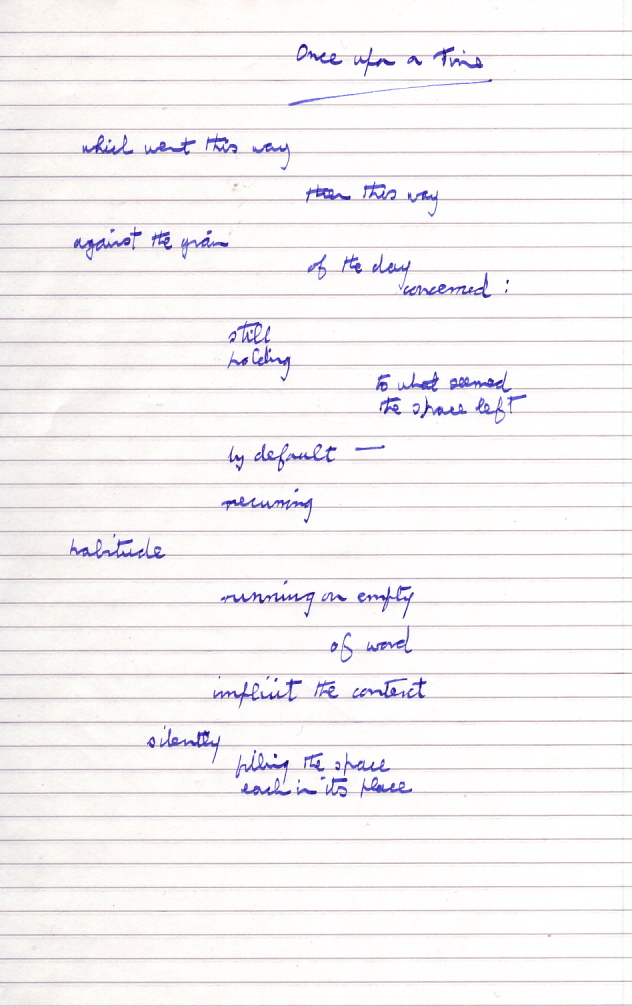 Once upon a Time
which went this way
then this way
against the grain
of the day
concerned :
still
holding
to what seemed
the space left
by default —
recurring
habitude
running on empty
of word
implicit the context
silently
filling the space
each in its place